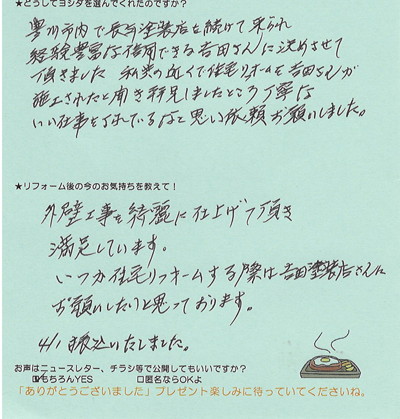 ★どうしてヨシダを選んでくれたのですか?
豊川市内で長年塗装店を続けて来られ
経験豊富な信用できる吉田さんに決めさせて
頂きました 私共の近くで住宅リフォームを吉田さんが
施工されたと聞き拝見しましたところ丁寧な
いい仕事をされているなと思い依頼お願いしました。
★リフォーム後の今のお気持ちを教えて!
外壁工事を綺麗に仕上げて頂き
満足しています。
いつか住宅リフォームする際は吉田塗装店さんに
お願いしたいと思っております。
4/1 振込いたしました。
お声はニュースレター、チラシ等で公開してもいいですか?
☑もちろんYES □匿名ならOKよ
「ありがとうございました」プレゼント楽しみに待っていてくださいね。